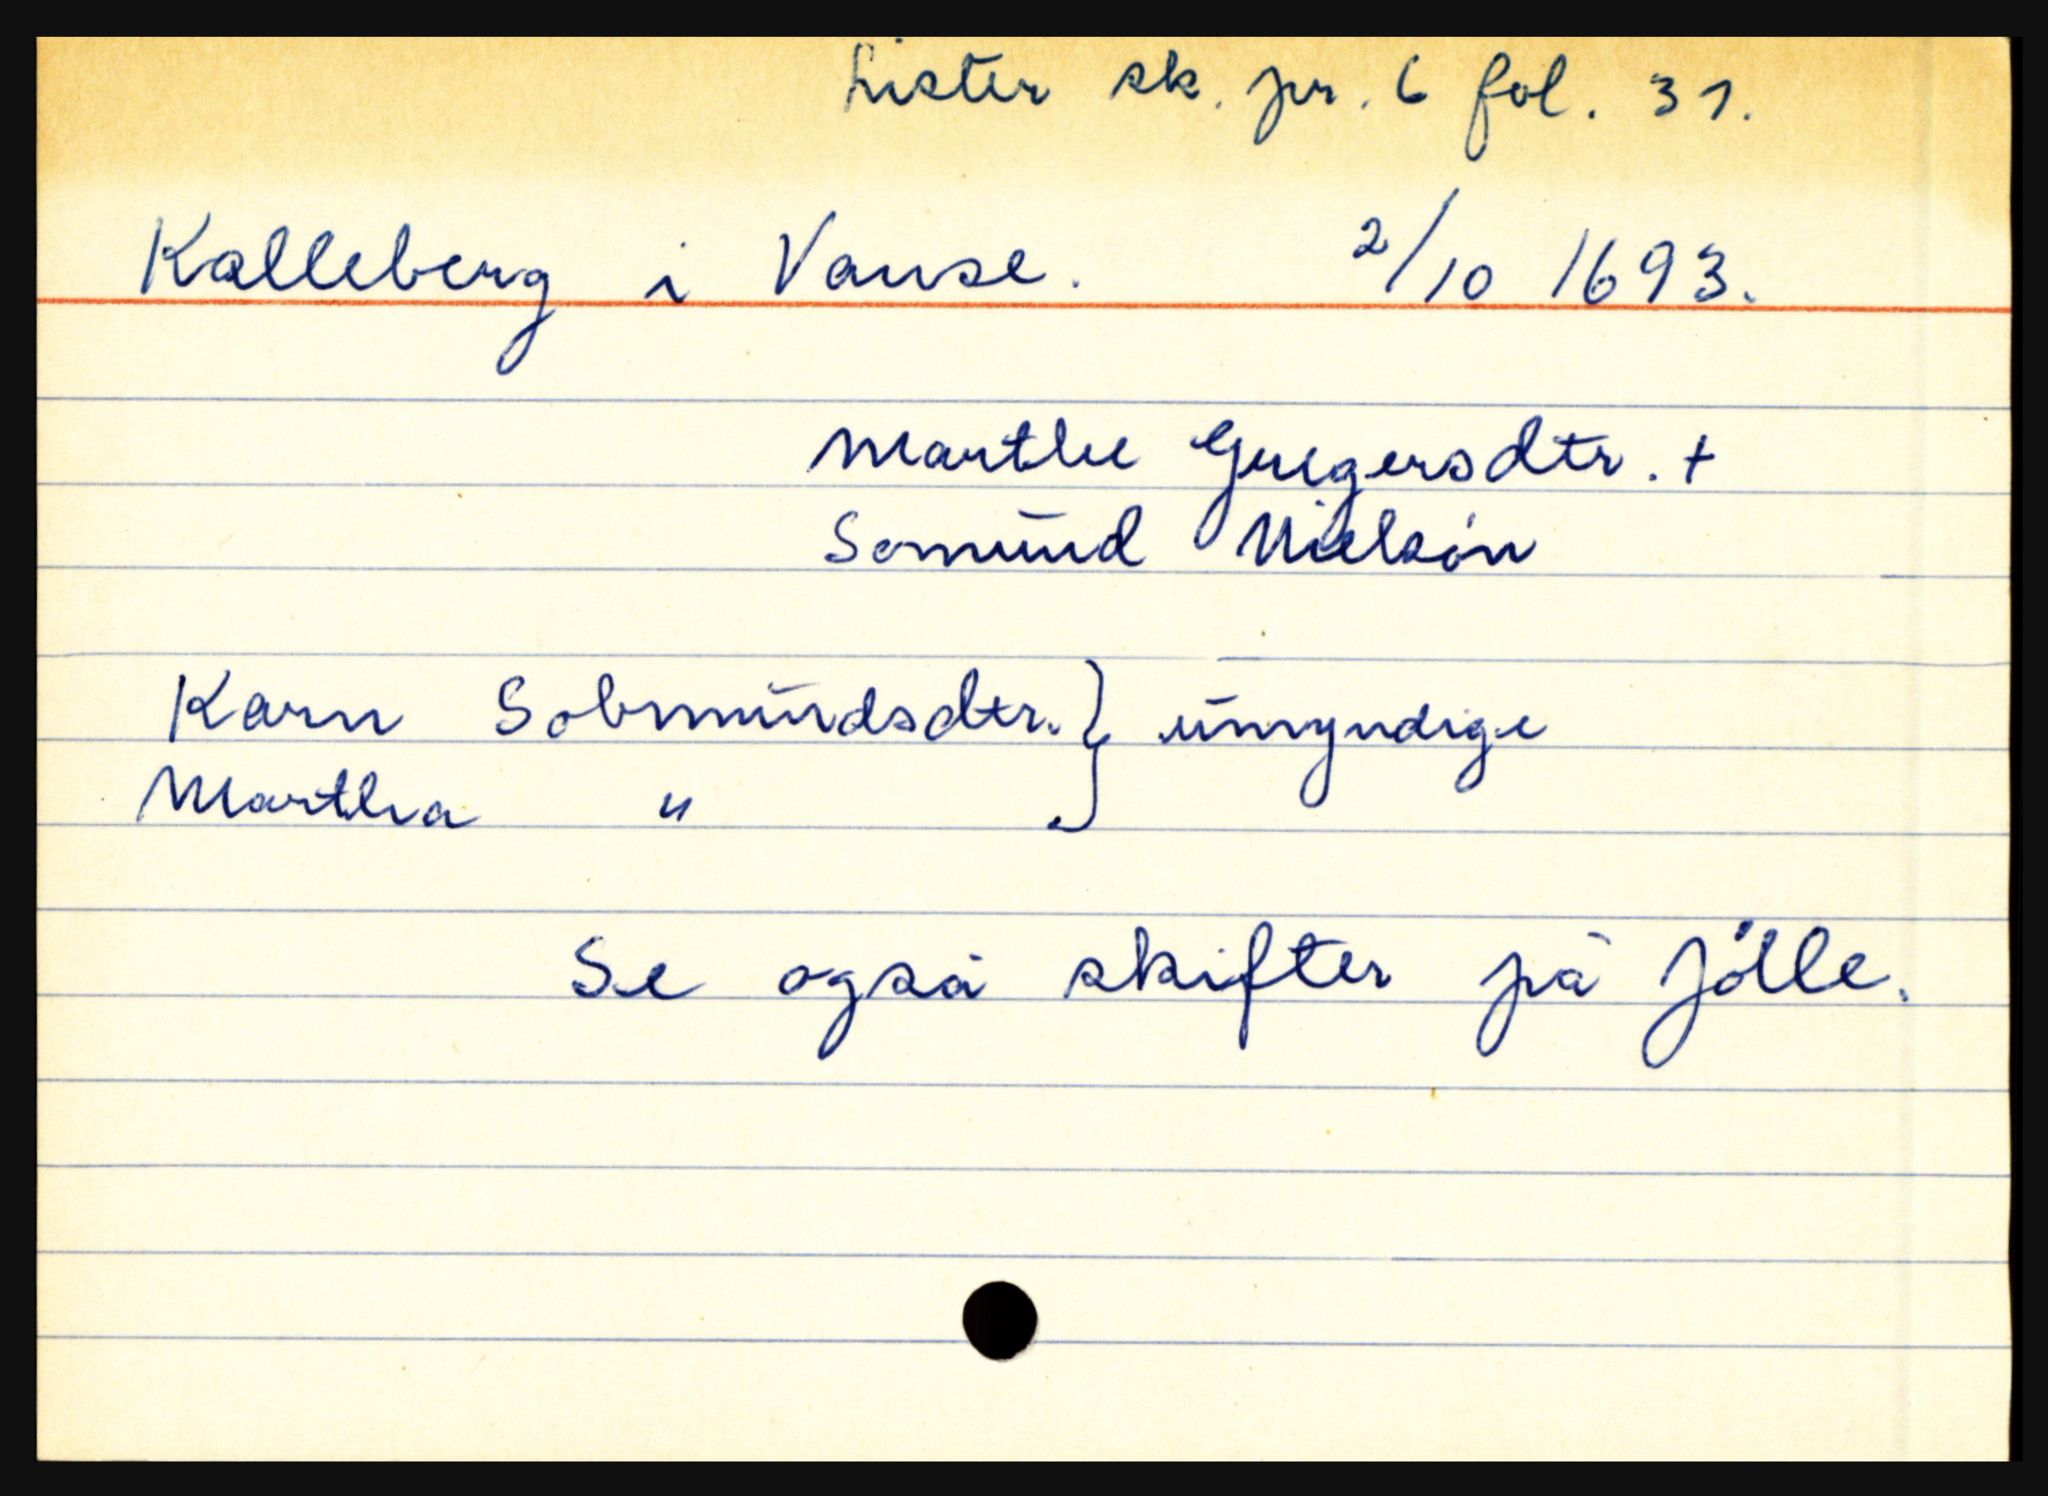 Lister sk. pr. 6 fol. 31.
Kalleberg i Vanse. 2/10 1693.
Marthe Gregersdtr. +
Somund Nielsøn
Karn Sobmundsdtr. } umyndige
Martha " }
Se også skifter på Jölle.